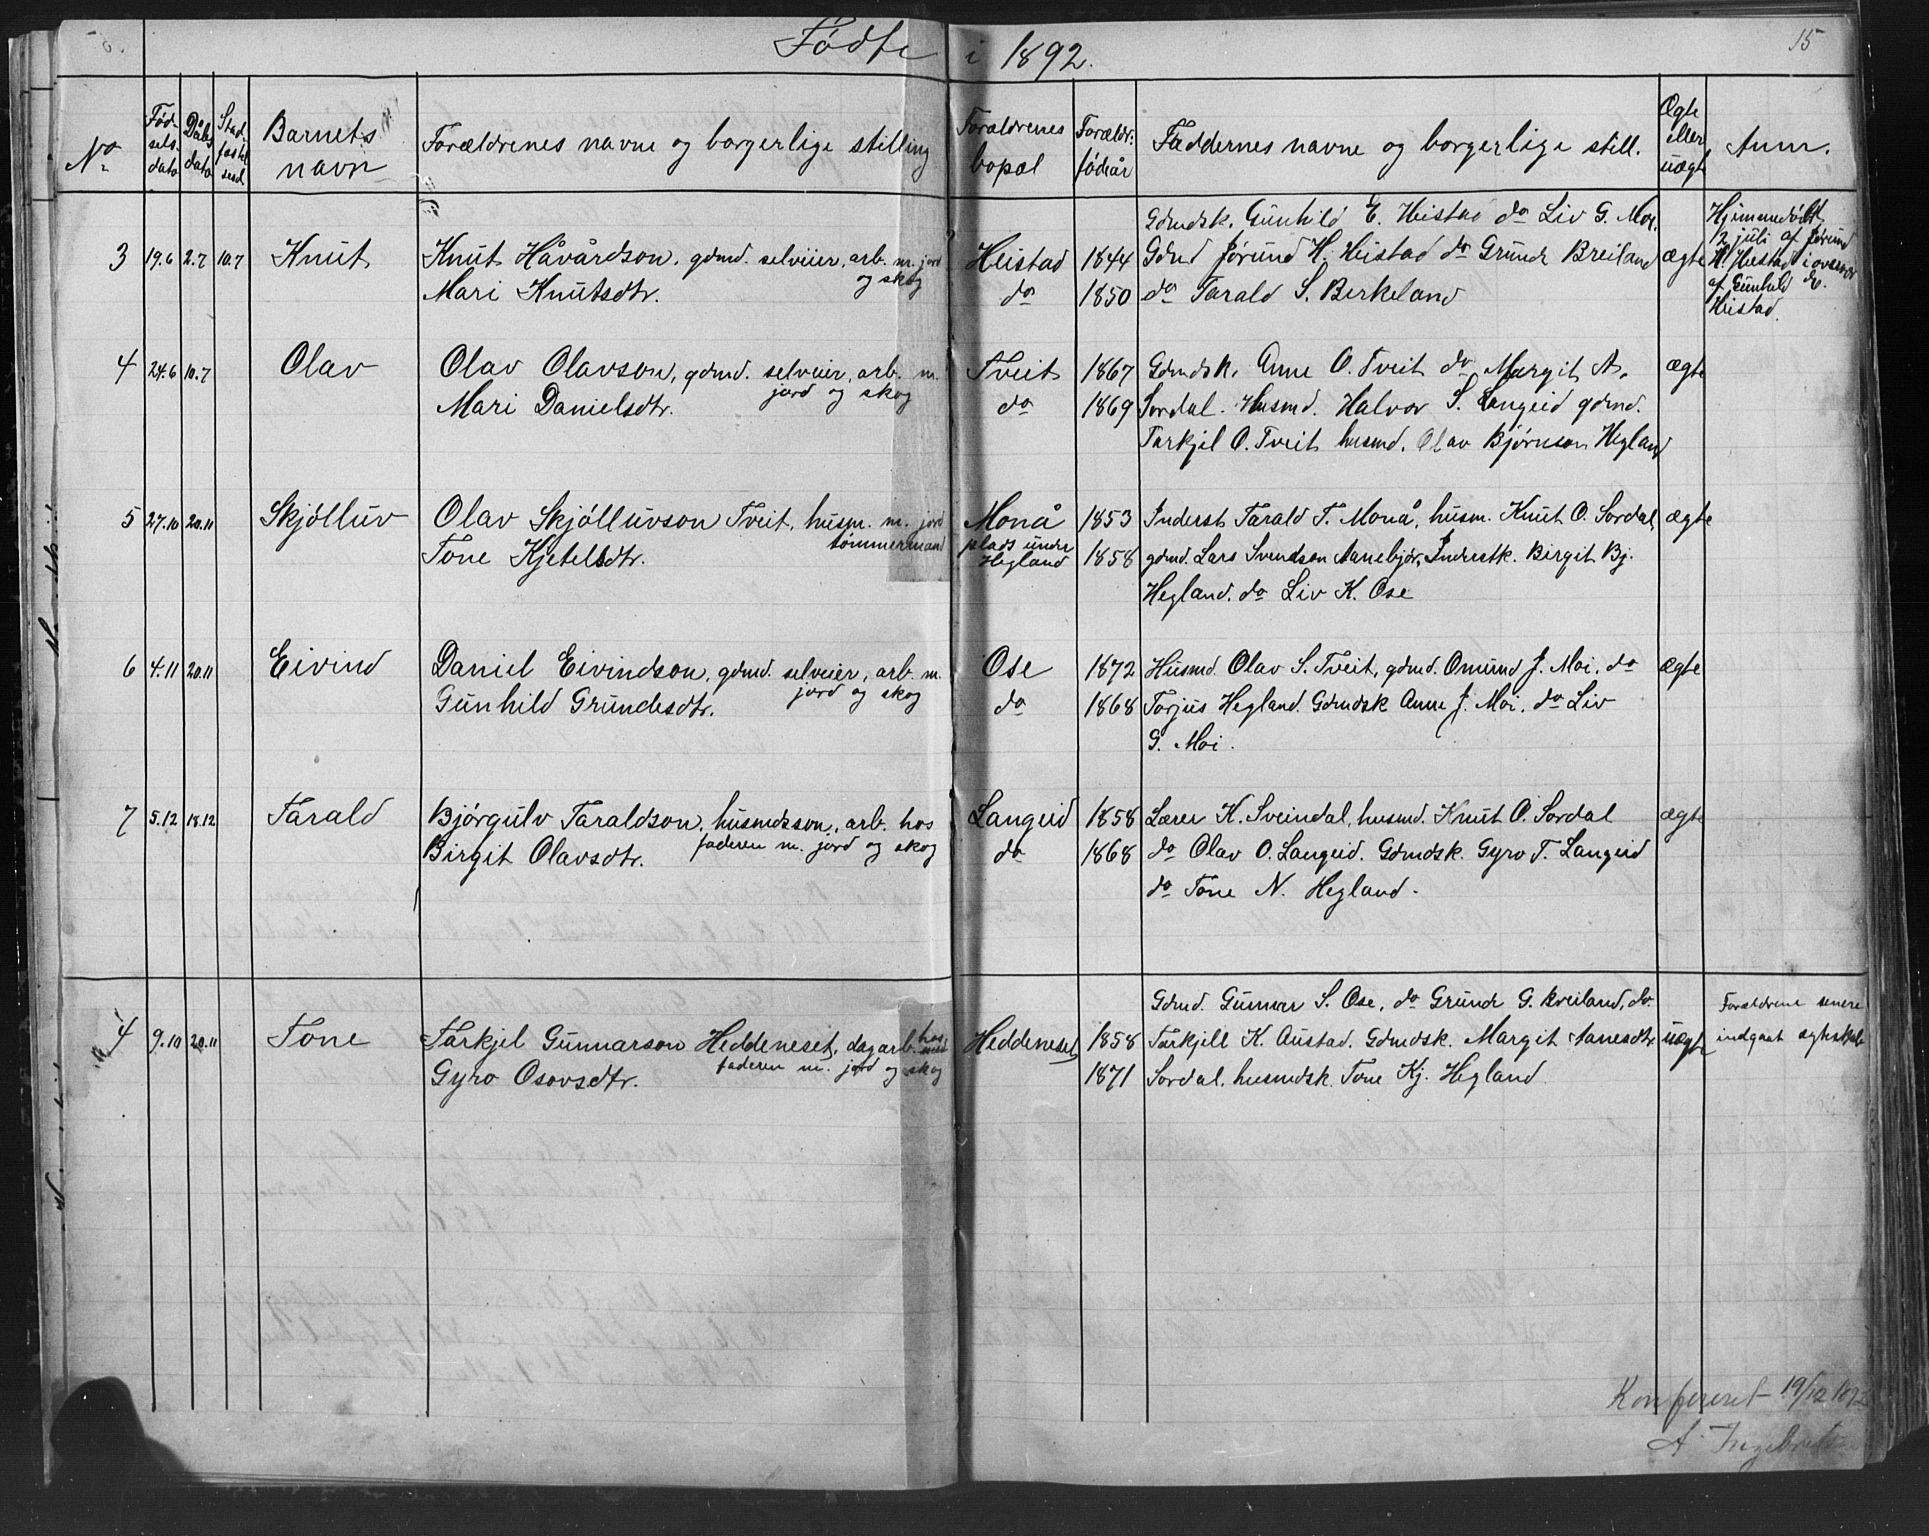 Fødte i 1892. 15
No Fød-sels-dato Dåbs dato Stad-fæstel sesd Barnets navn Forældrenes navne og borgerlige stilling Forældrenes bopæl Forældr. fødeår Faddernes navne og borgerlige still. Ægte eller uægte Anm.
Gdmdsk. Gunhild E. Heistad do Liv G. Moi.
3 19.6 2.7 10.7 Knut Knut Håvårdson, gdmd. selveier, arb. m. jord og skog Heistad 1844 Gdmd Jørund H. Heistad do Grunde Breiland ægte Hjemmedøbt
Mari Knutsdtr. do 1850 do Tarald S. Berkeland
2 juli af Jørund
H. Heistad i overvær
af Gunhild E.
Heistad.
4 24.6 10.7 Olav Olav Olavson, gdmd. selveier, arb. m. jord og skog Tveit 1867 Gdmdsk. Anne O. Tveit do Margit A. ægte
Mari Danielsdtr. do 1869 Sordal. Husmd. Halvor S. Langeid gdmd.
Tarkjel O. Tveit husmd. Olav Bjørnson Hegland
5 27.10 20.11 Skjølluv Olav Skjølluvson Tveit, husm. m. jord tømmermand Monå 1853 Inderst Tarald T. Monå, husm. Knut O. Sordal ægte
Tone Kjetelsdtr. plads under Hegland 1858 gdmd. Lars Svendson Aanebjør, Inderstk. Birgit Bj.
Hegland. do Liv K. Ose
6 4.11 20.11 Eivind Daniel Eivindson, gdmd. selveier, arb. m. jord og skog Ose 1872 Husmd Olav S. Tveit, gdmd. Omund J. Moi. do ægte
Gunhild Grundesdtr. do 1868 Torjus Hegland. Gdmdsk Anne J. Moi. do Liv
G. Moi.
7 5.12 18.12 Tarald Bjørgulv Taraldson, husmdsson, arb. hos faderen m. jord og skog Langeid 1858 Lærer K. Sveindal, husmd. Knut O. Sordal ægte
Birgit Olavsdtr. do 1868 do Olav O. Langeid. Gdmdsk. Gyro T. Langeid
do Tone N. Hegland.
Gdmd. Gunnar S. Ose, do Grunde G. Breiland, do Forældrene senere
4 9.10 20.11 Tone Tarkjel Gunnarson Heddeneset, dagarb. hos faderen m. jord og skog Heddeneset 1858 Tarkjell K. Austad. Gdmdsk. Margit Aanesdtr uægte indgaat egteskab
Gyro Osovsdtr. 1871 Sordal, husmdsk. Tone Kj. Hegland.
Konfereret 19/12 1892
A Ingebretsen